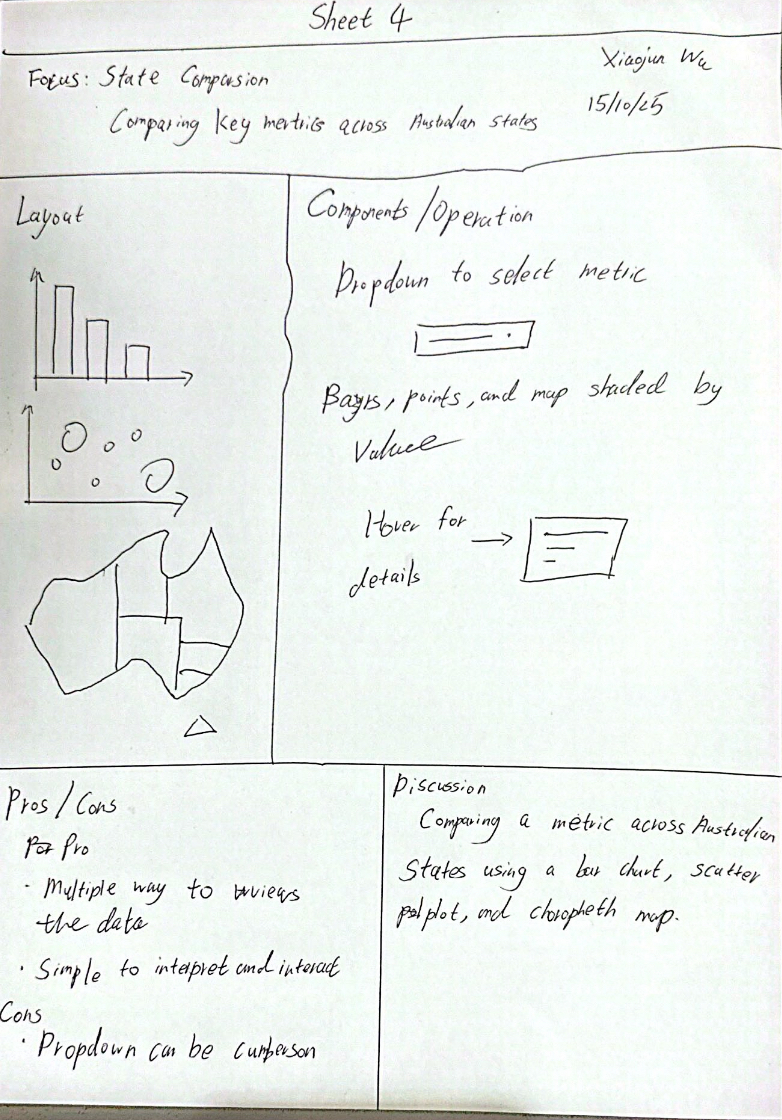 Sheet 4
Focus: State Comparsion
Comparing key mertrics across Australian states
Xiaojun Wu
15/10/25
Layout
Components/Operation
Dropdown to select metric
Bars, points, and map shaded by
Value
Hover for
details
Pros/Cons
Pro
· Multiple way to views
the data
· Simple to interpret and interact
Cons
· Dropdown can be cumberson
Discussion
Comparing a metric across Australian
States using a bar chart, scatter
plot, and choropheth map.